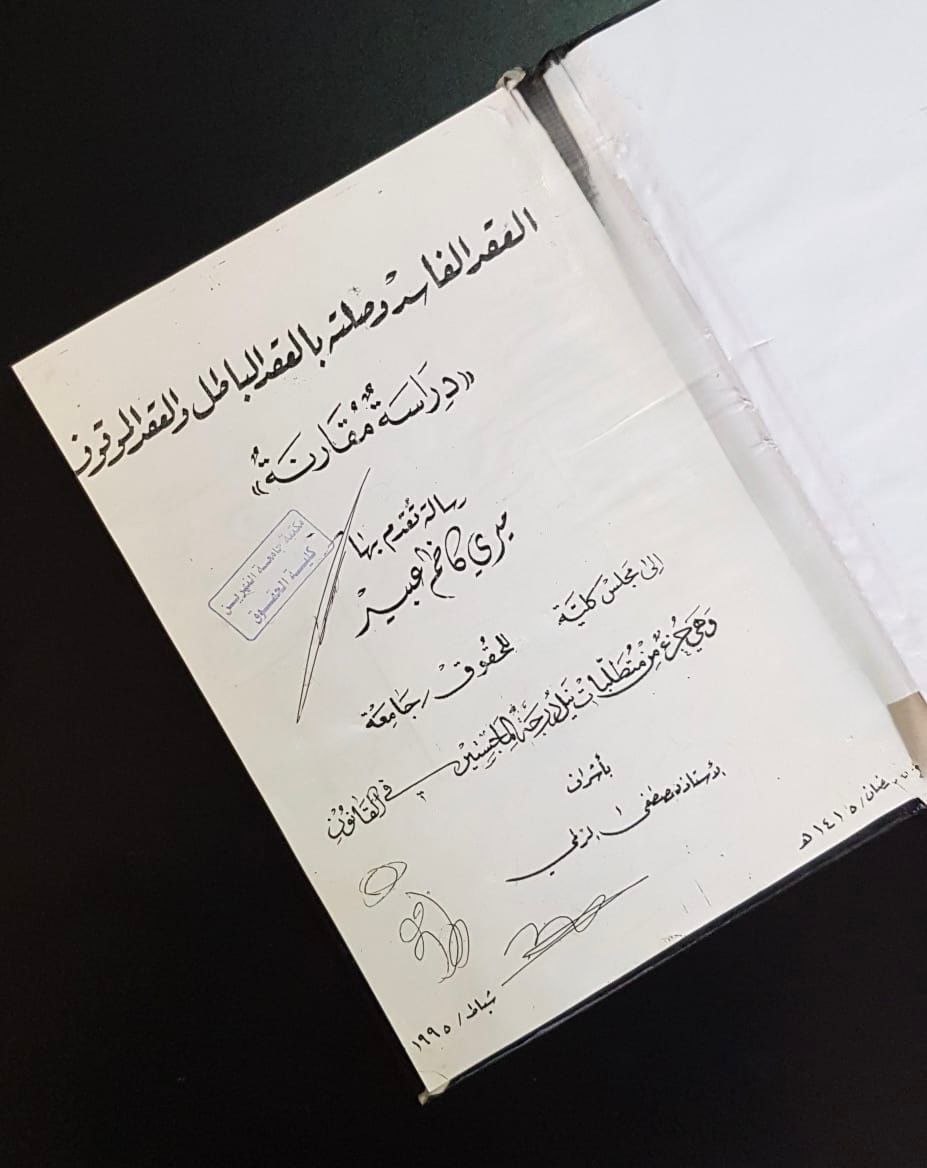 العقد الفاسد وصلته بالعقد الباطل والعقد الموقوف
«دِرَاسَةٌ مُقَارنَةٌ»
رسالة تقدم بها
صبري كاظم عبير
مكتبة جامعة النهرين
كلية الحقوق
إلى مجلس كليّة الحقوق جَامِعَة
وَهي جُزءٌ مِنْ مُتطَلّباتِ نَيْل دَرجَة الماجستير في القَانُونِ
بأشراف
الأستاذ مصطفى الزلمي
رمضان / ١٤١٥ هـ
شباط / ١٩٩٥